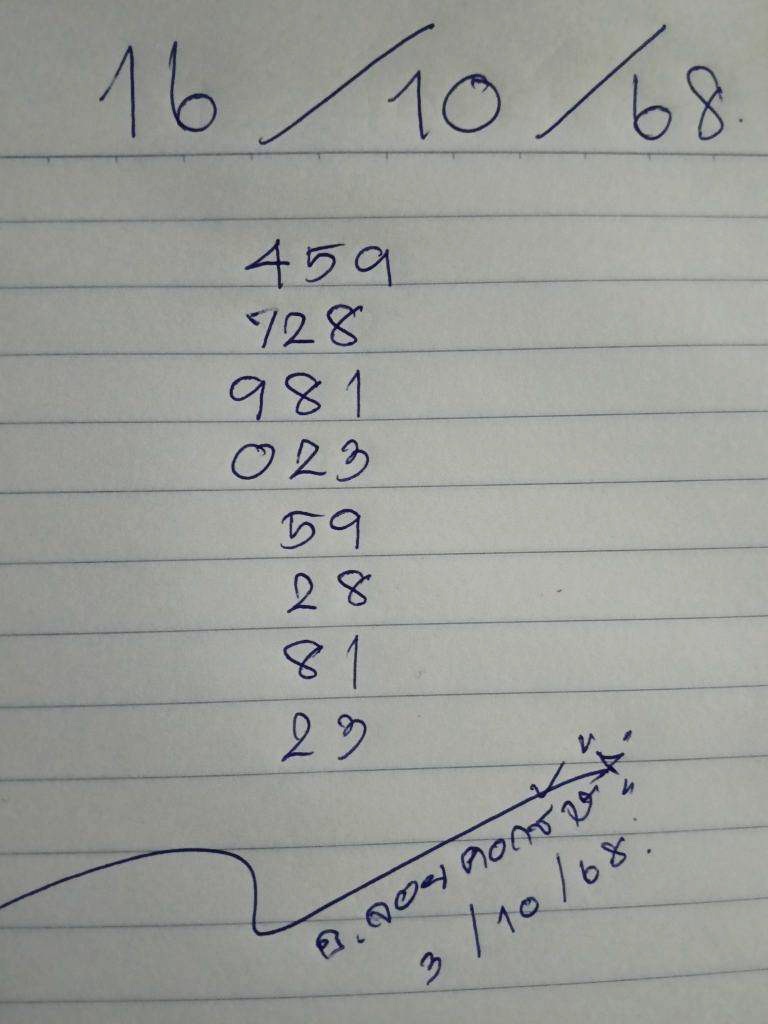 16/10/68.
459
728
981
023
59
28
81
23
อ.ลอย
3/10/68.